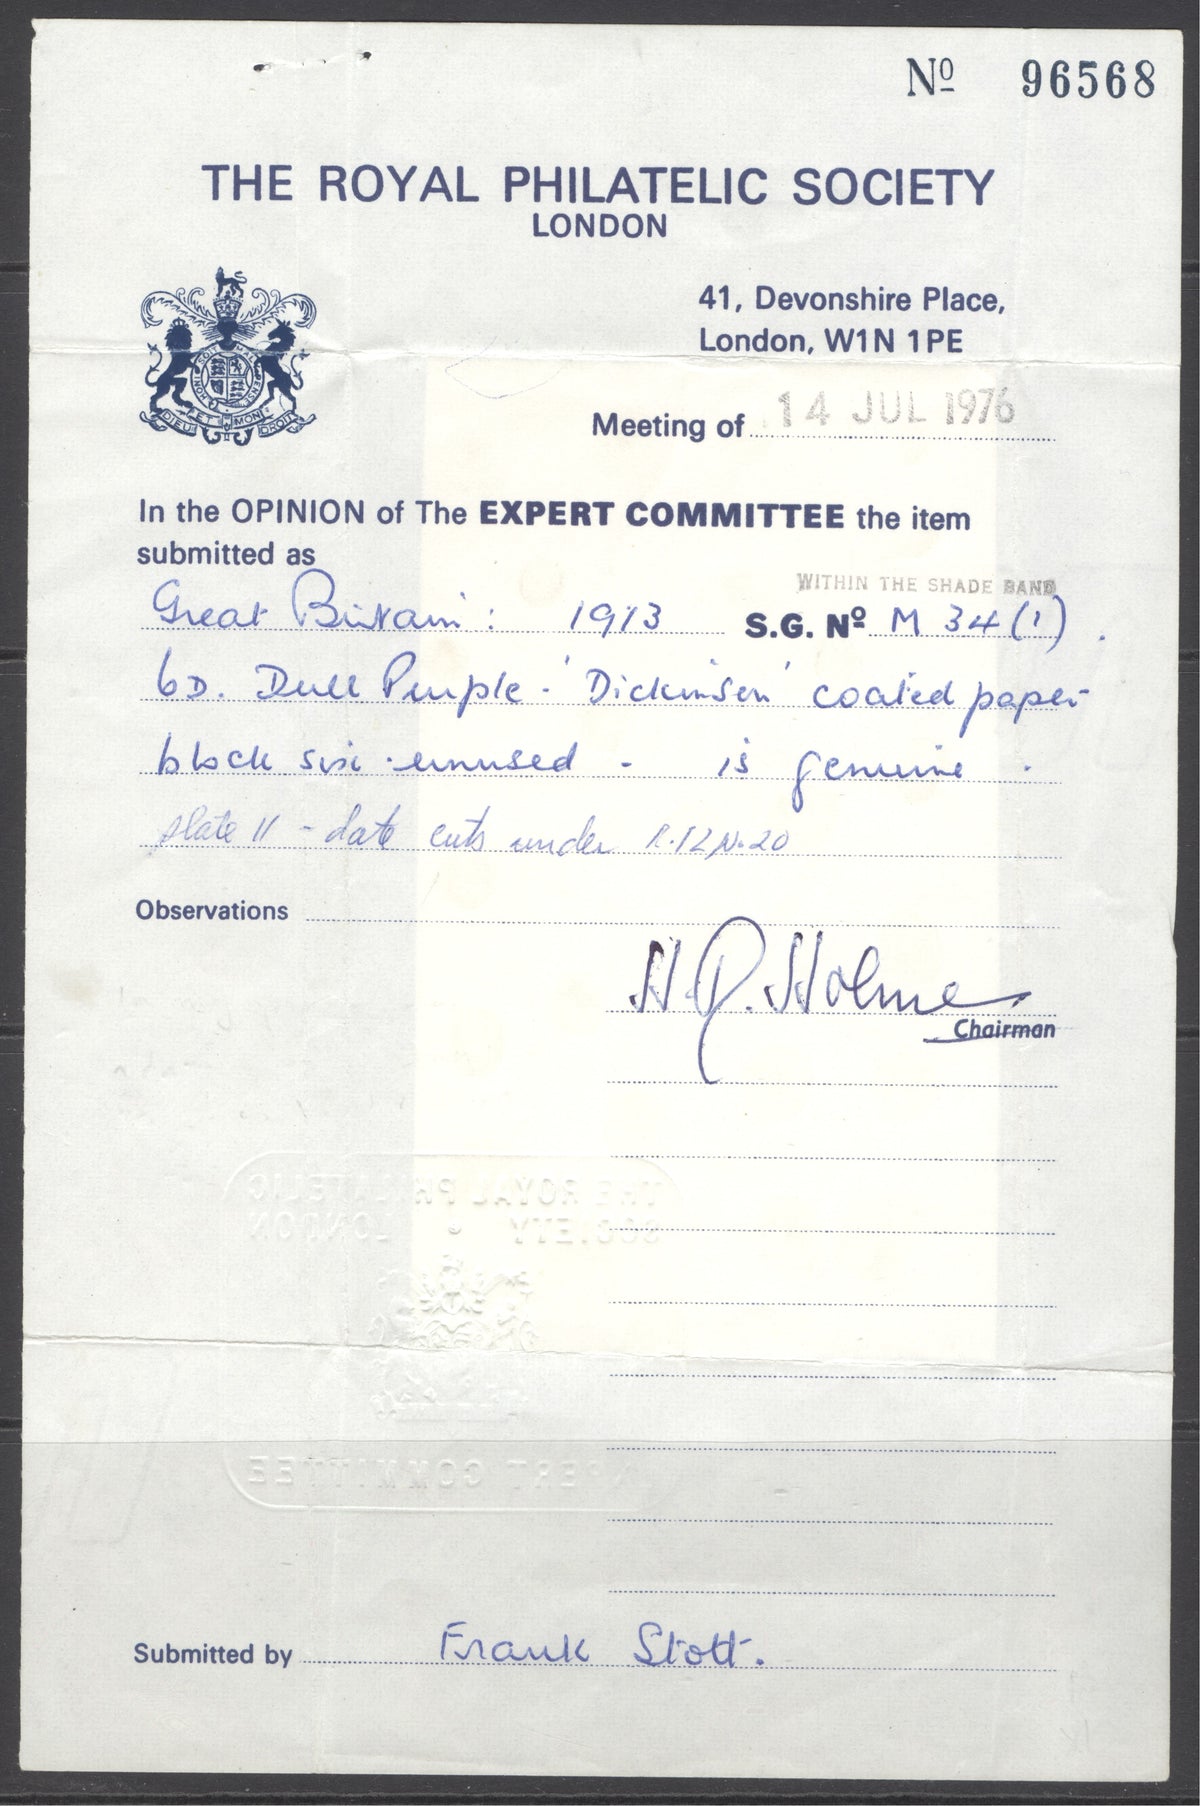 Nº 96568
THE ROYAL PHILATELIC SOCIETY
LONDON
41, Devonshire Place,
London, W1N 1PE
DIEU ET MON DROIT
Meeting of 14 JUL 1976
In the OPINION of The EXPERT COMMITTEE the item
submitted as
WITHIN THE SHADE BAND
Great Britain: 1913 S.G. Nº M 34 (1).
6D. Dull Purple - 'Dickinson' coated paper
block six unused - is genuine.
plate 11 - date cuts under R.12 No. 20
Observations
H R. Holmes
Chairman
THE ROYAL PHILATELIC
SOCIETY LONDON
EXPERT COMMITTEE
Submitted by Frank Stott.